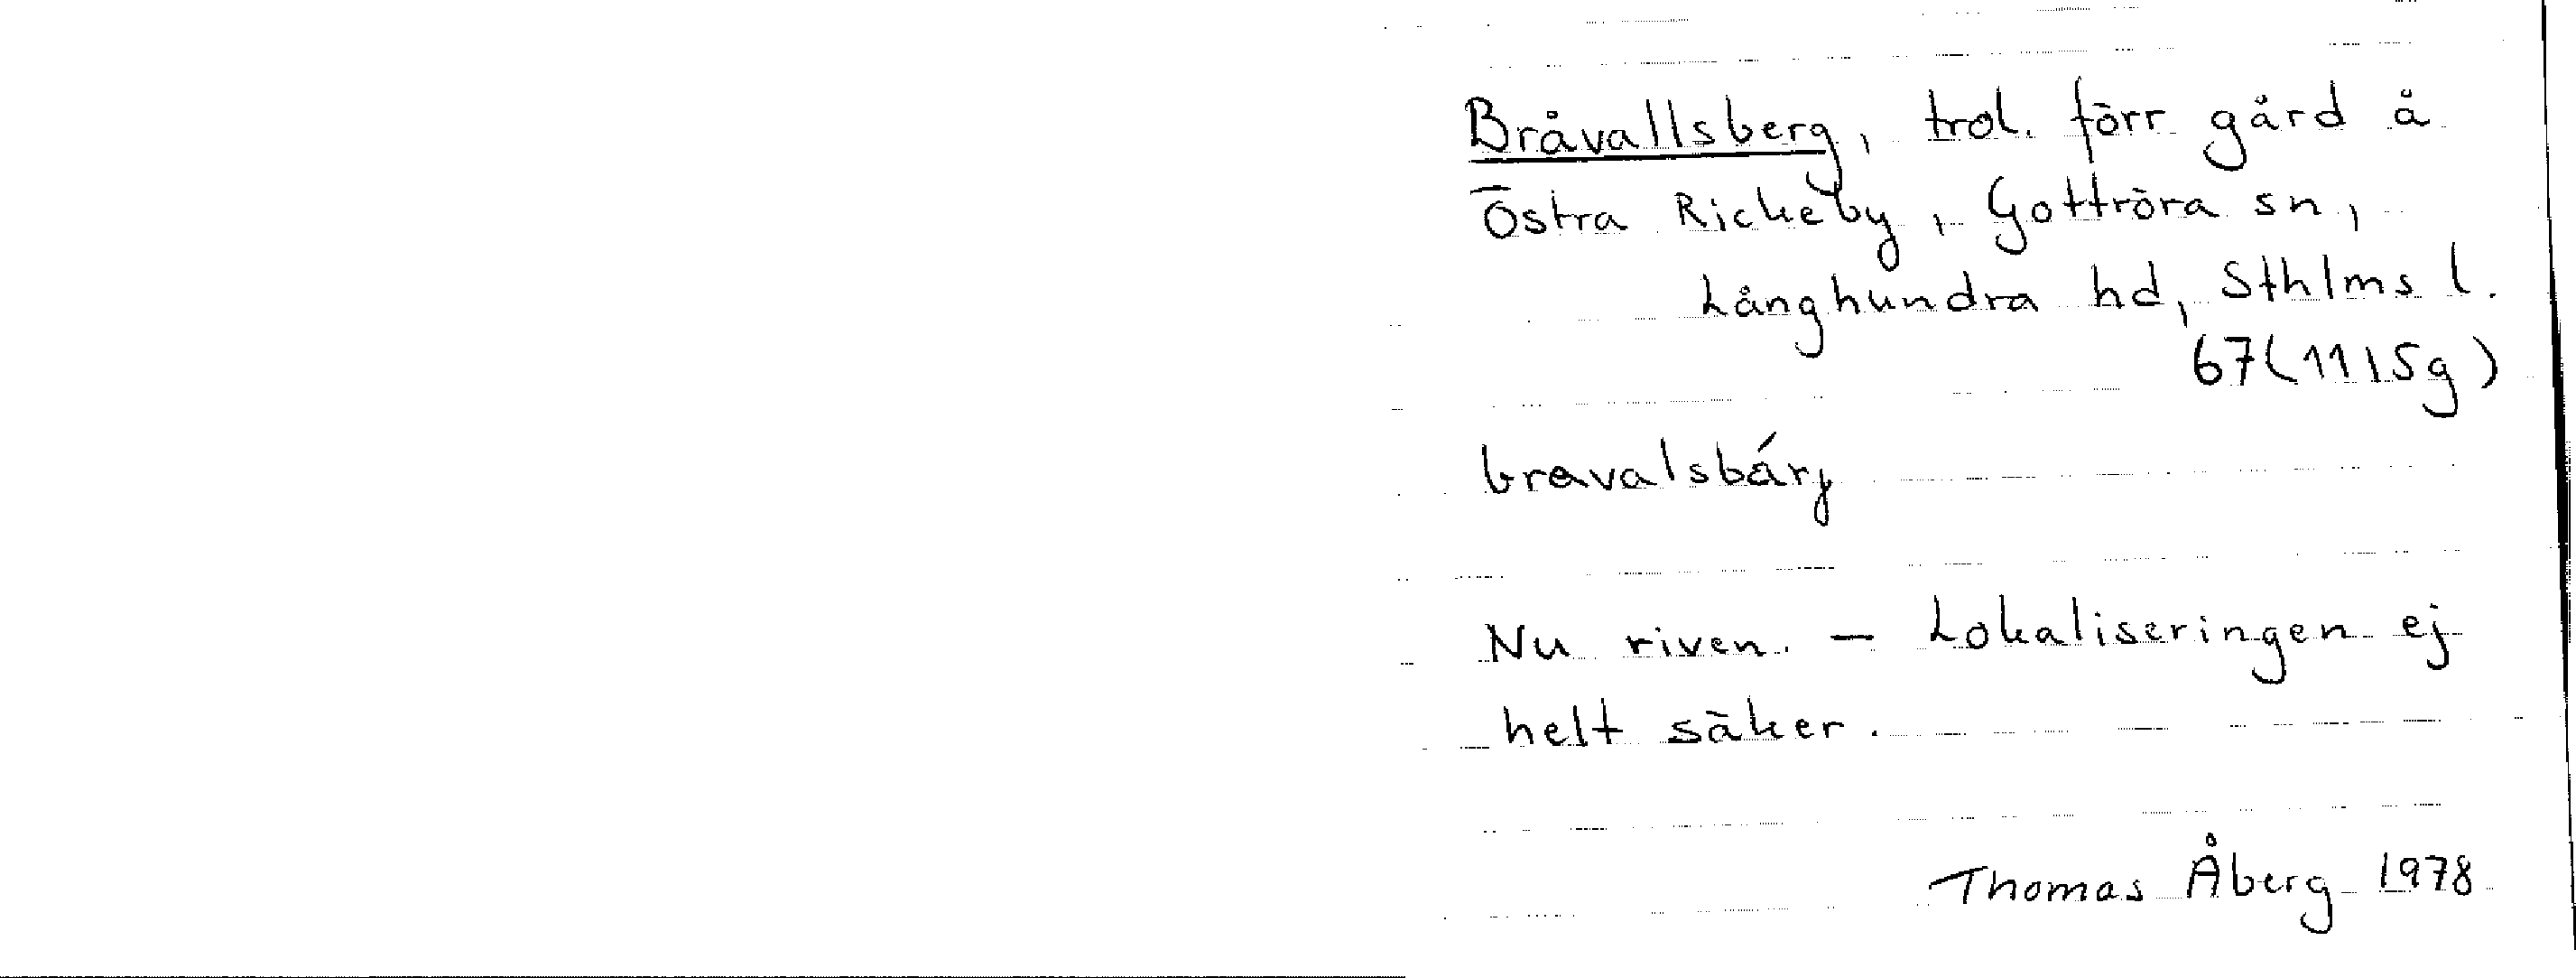 Bråvallsberg, trol. förr gård å
Östra Rickeby, Gottröra sn,
Långhundra hd, Sthlms l.
67(11I5g)
bravalsbárj
Nu riven. – Lokaliseringen ej
helt säker.
Thomas Åberg 1978